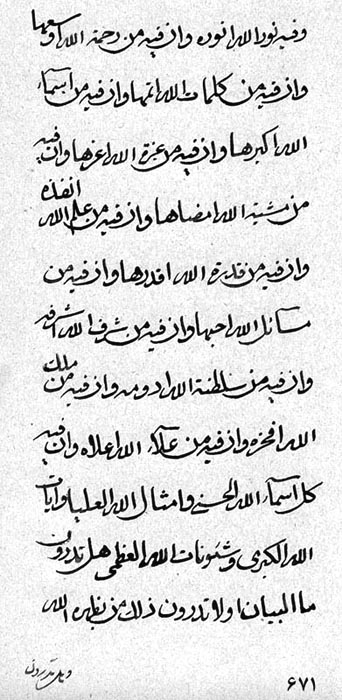 وفيه نور الله انوره وان فيه من رحمة الله اوسعها
وان فيه من كلمات الله اتمها وان فيه من اسماء
الله اكبرها وان فيه من عزة الله اعزها وان فيه
من مشية الله امضاها وان فيه من علم الله انفذه
وان فيه من قدرة الله اقدرها وان فيه من
مسائل الله احبها وان فيه من شرف الله اشرفه
وان فيه من سلطنة الله ادومه وان فيه من ملك
الله افخره وان فيه من علاء الله اعلاه وان فيه
كل اسماء الله الحسنى وامثال الله العليا وايات
الله الكبرى وشئونات الله العظمى هل تدرون
ما البيان او لا تدرون ذلك من يظهره الله
وبل تدرون
۶۷۱